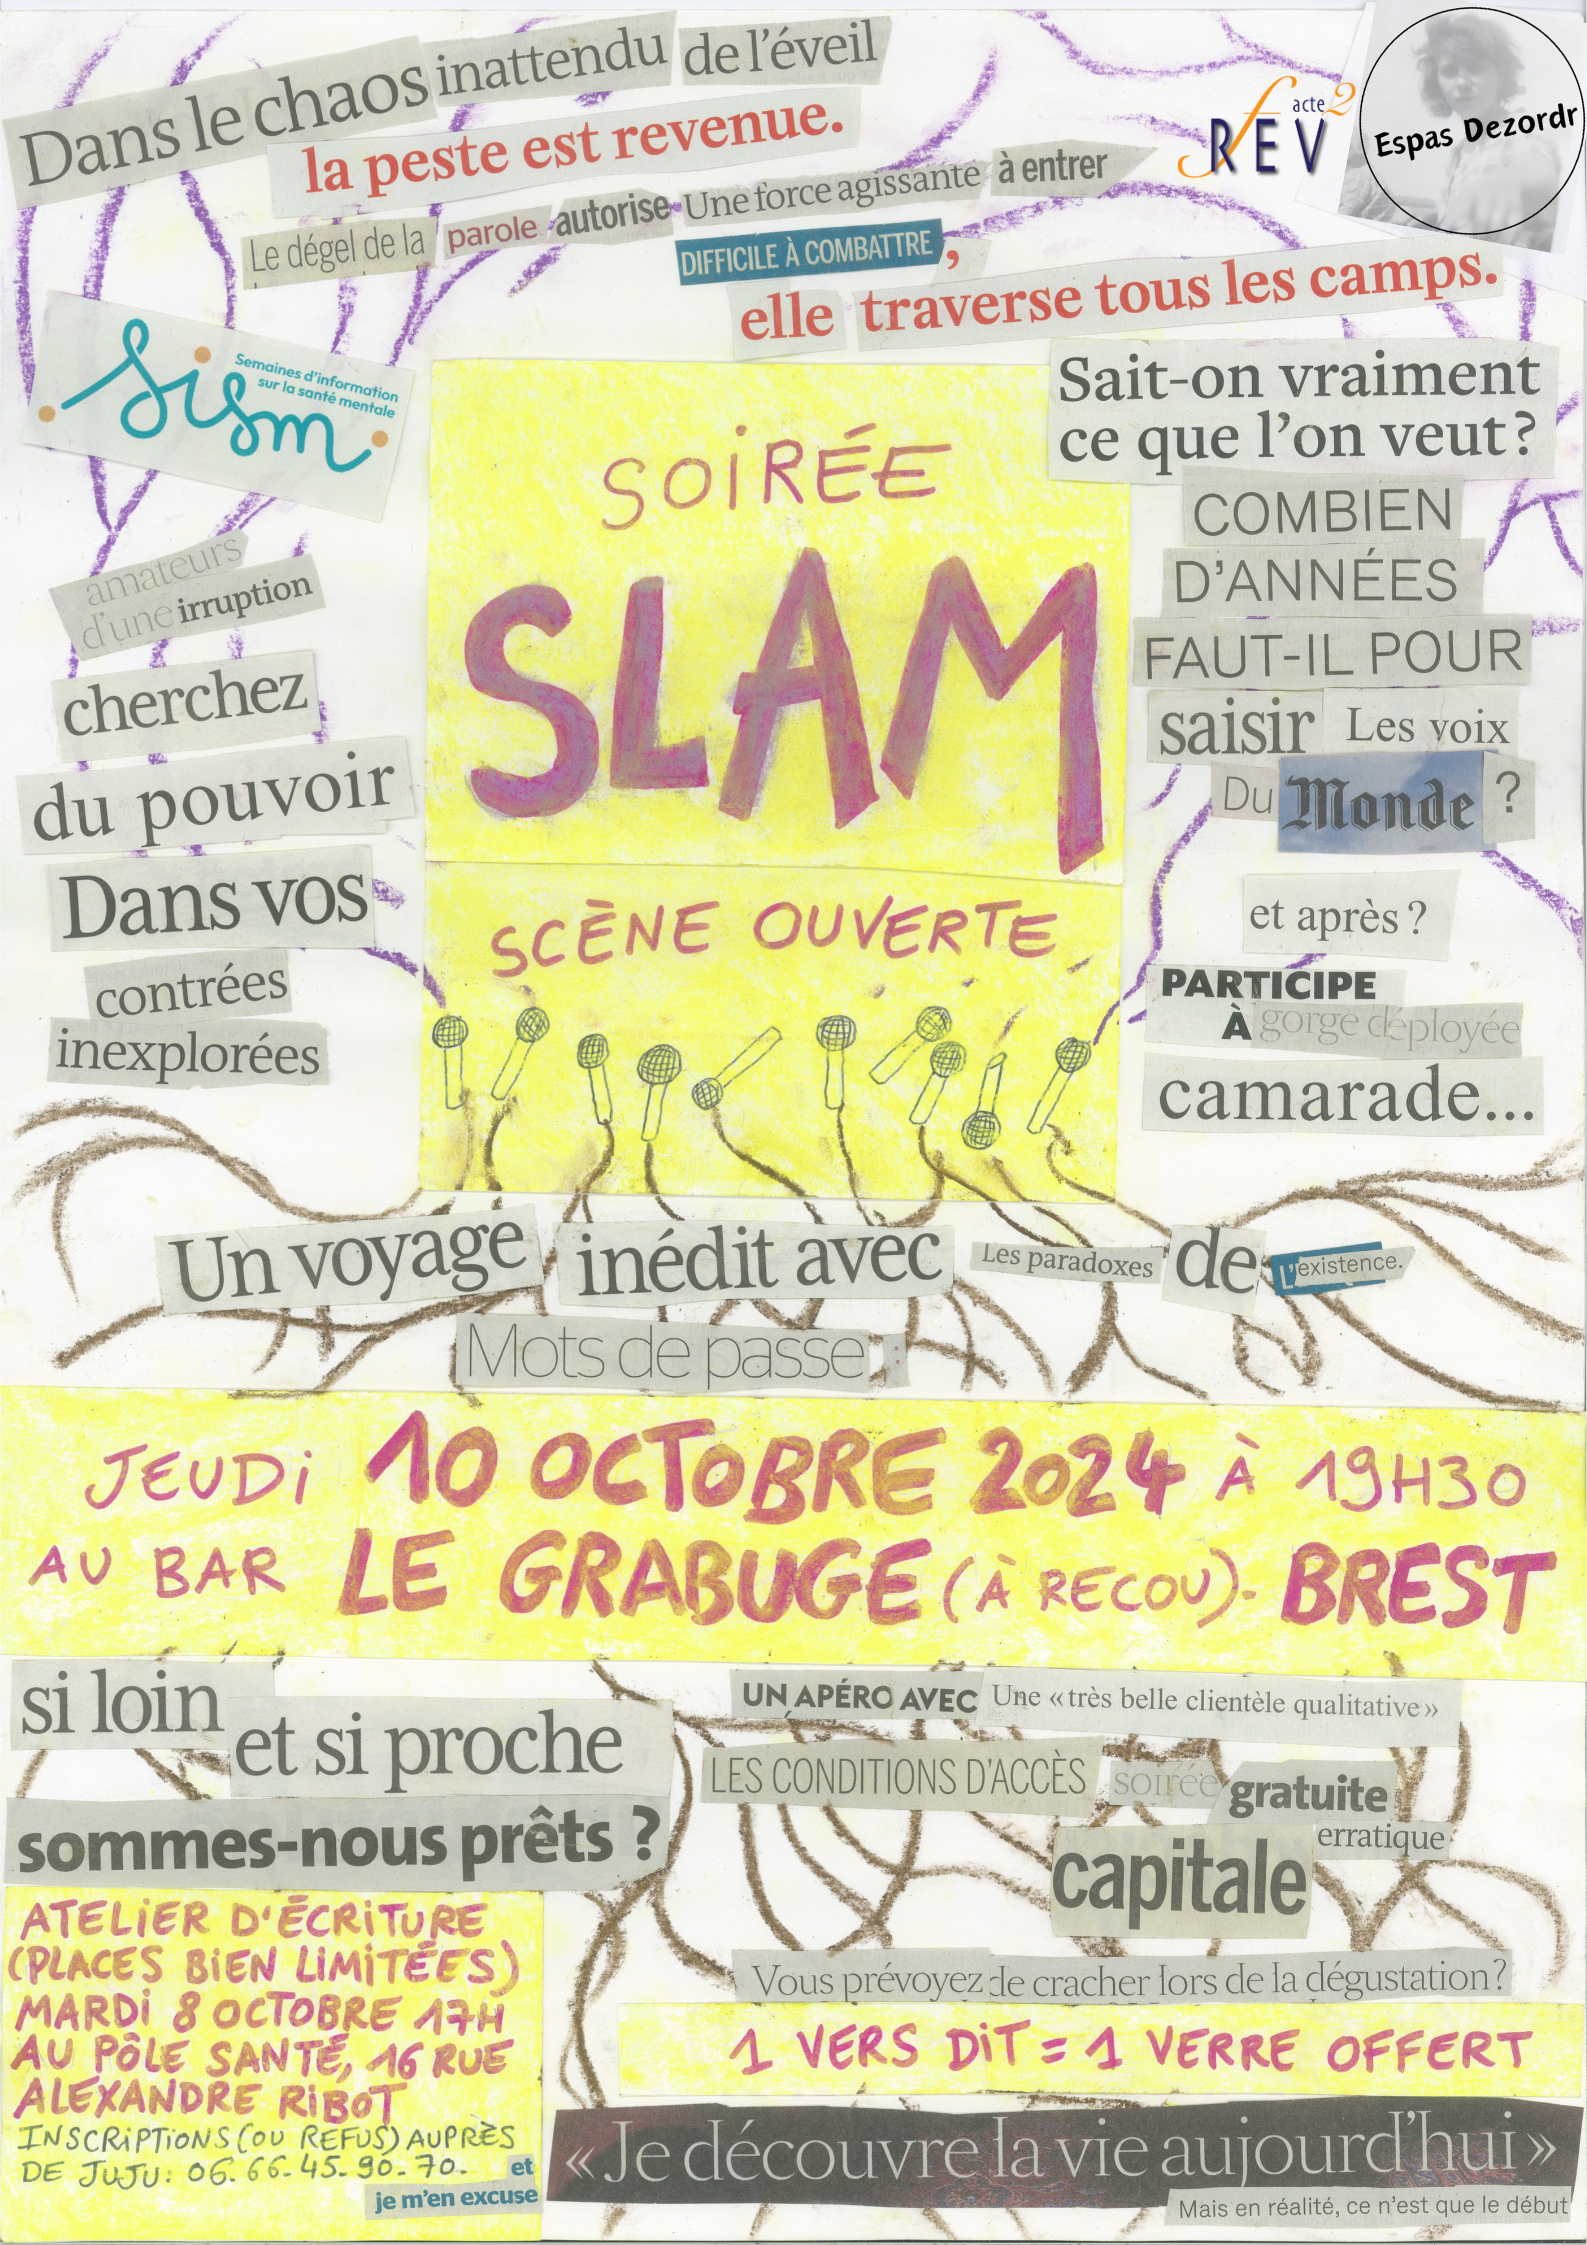 Dans le chaos inattendu de l'éveil
la peste est revenue.
Le dégel de la parole autorise Une force agissante à entrer
DIFFICILE À COMBATTRE ,
elle traverse tous les camps.
RÊEV acte 2
Espas Dezordr
sism
Semaines d'information
sur la santé mentale
SOIRÉE
SLAM
SCÈNE OUVERTE
amateurs
d'une irruption
cherchez
du pouvoir
Dans vos
contrées
inexplorées
Sait-on vraiment
ce que l'on veut ?
COMBIEN
D'ANNÉES
FAUT-IL POUR
saisir Les voix
Du Monde ?
et après ?
PARTICIPE
À gorge déployée
camarade...
Un voyage inédit avec Les paradoxes de L'existence.
Mots de passe :
JEUDI 10 OCTOBRE 2024 À 19H30
AU BAR LE GRABUGE (À RECOU). BREST
si loin
et si proche
sommes-nous prêts ?
UN APÉRO AVEC Une « très belle clientèle qualitative »
LES CONDITIONS D'ACCÈS soirée gratuite
erratique
capitale
Vous prévoyez de cracher lors de la dégustation ?
1 VERS DIT = 1 VERRE OFFERT
ATELIER D'ÉCRITURE
(PLACES BIEN LIMITÉES)
MARDI 8 OCTOBRE 17H
AU PÔLE SANTÉ, 16 RUE
ALEXANDRE RIBOT
INSCRIPTIONS (OU REFUS) AUPRÈS
DE JUJU : 06.66.45.90.70. et
je m'en excuse
« Je découvre la vie aujourd'hui »
Mais en réalité, ce n'est que le début